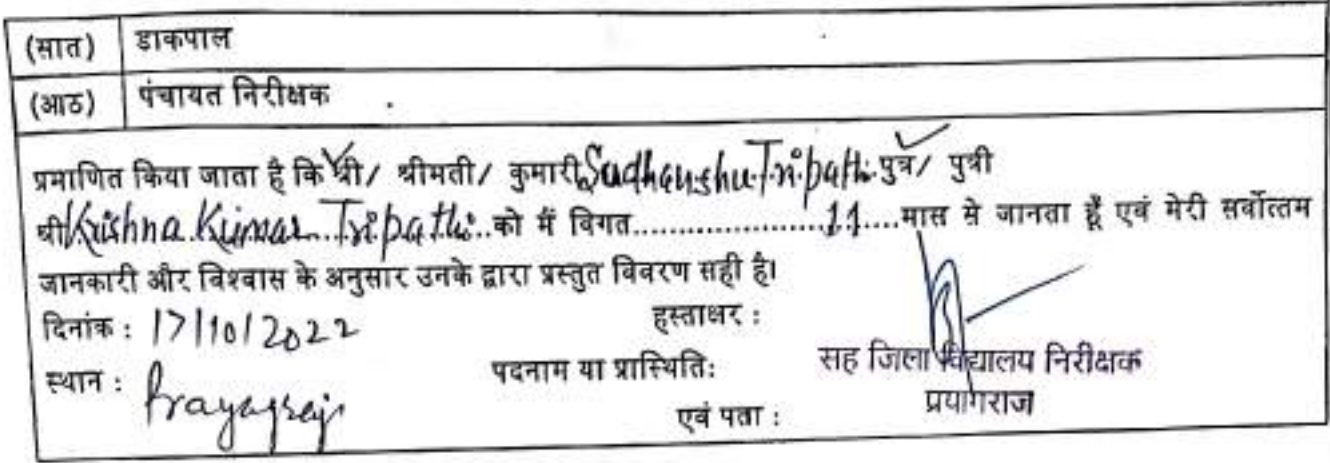 (सात) डाकपाल
(आठ) पंचायत निरीक्षक
प्रमाणित किया जाता है कि श्री/ श्रीमती/ कुमारी Sudhanshu Tripathi पुत्र/ पुत्री
श्री Krishna Kumar Tripathi..को मैं विगत.....................11....मास से जानता हूँ एवं मेरी सर्वोत्तम
जानकारी और विश्वास के अनुसार उनके द्वारा प्रस्तुत विवरण सही है।
दिनांक : 17/10/2022 हस्ताक्षर :
स्थान : Prayagraj पदनाम या प्रास्थितिः सह जिला विद्यालय निरीक्षक
एवं पता : प्रयागराज